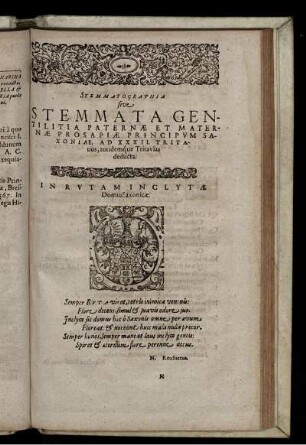 STEMMATOGRAPHIA
sive
STEMMATA GEN-
TILITIA PATERNÆ ET MATER-
NÆ PROSAPIÆ PRINCIPVM SA-
XONIAE, AD XXXII. TRITA-
vos, totidemque Tritavias
deducta.
IN RVTAM INCLYTÆ
Domus Saxonicæ.
Semper RVTA viret, tetris inimica venenis:
Flore decens simul & suavis odore suo.
Inclyta sic domus hæc ô Saxonis omne per ævum
Floreat: & noceant huic mala nulla precor.
Semper honos, semper maneat laus inclyta gentis:
Spiret & æternum fiore perenne decus.
N. Reusnerus.
N
MARCHIO
BELLA &
A. C.